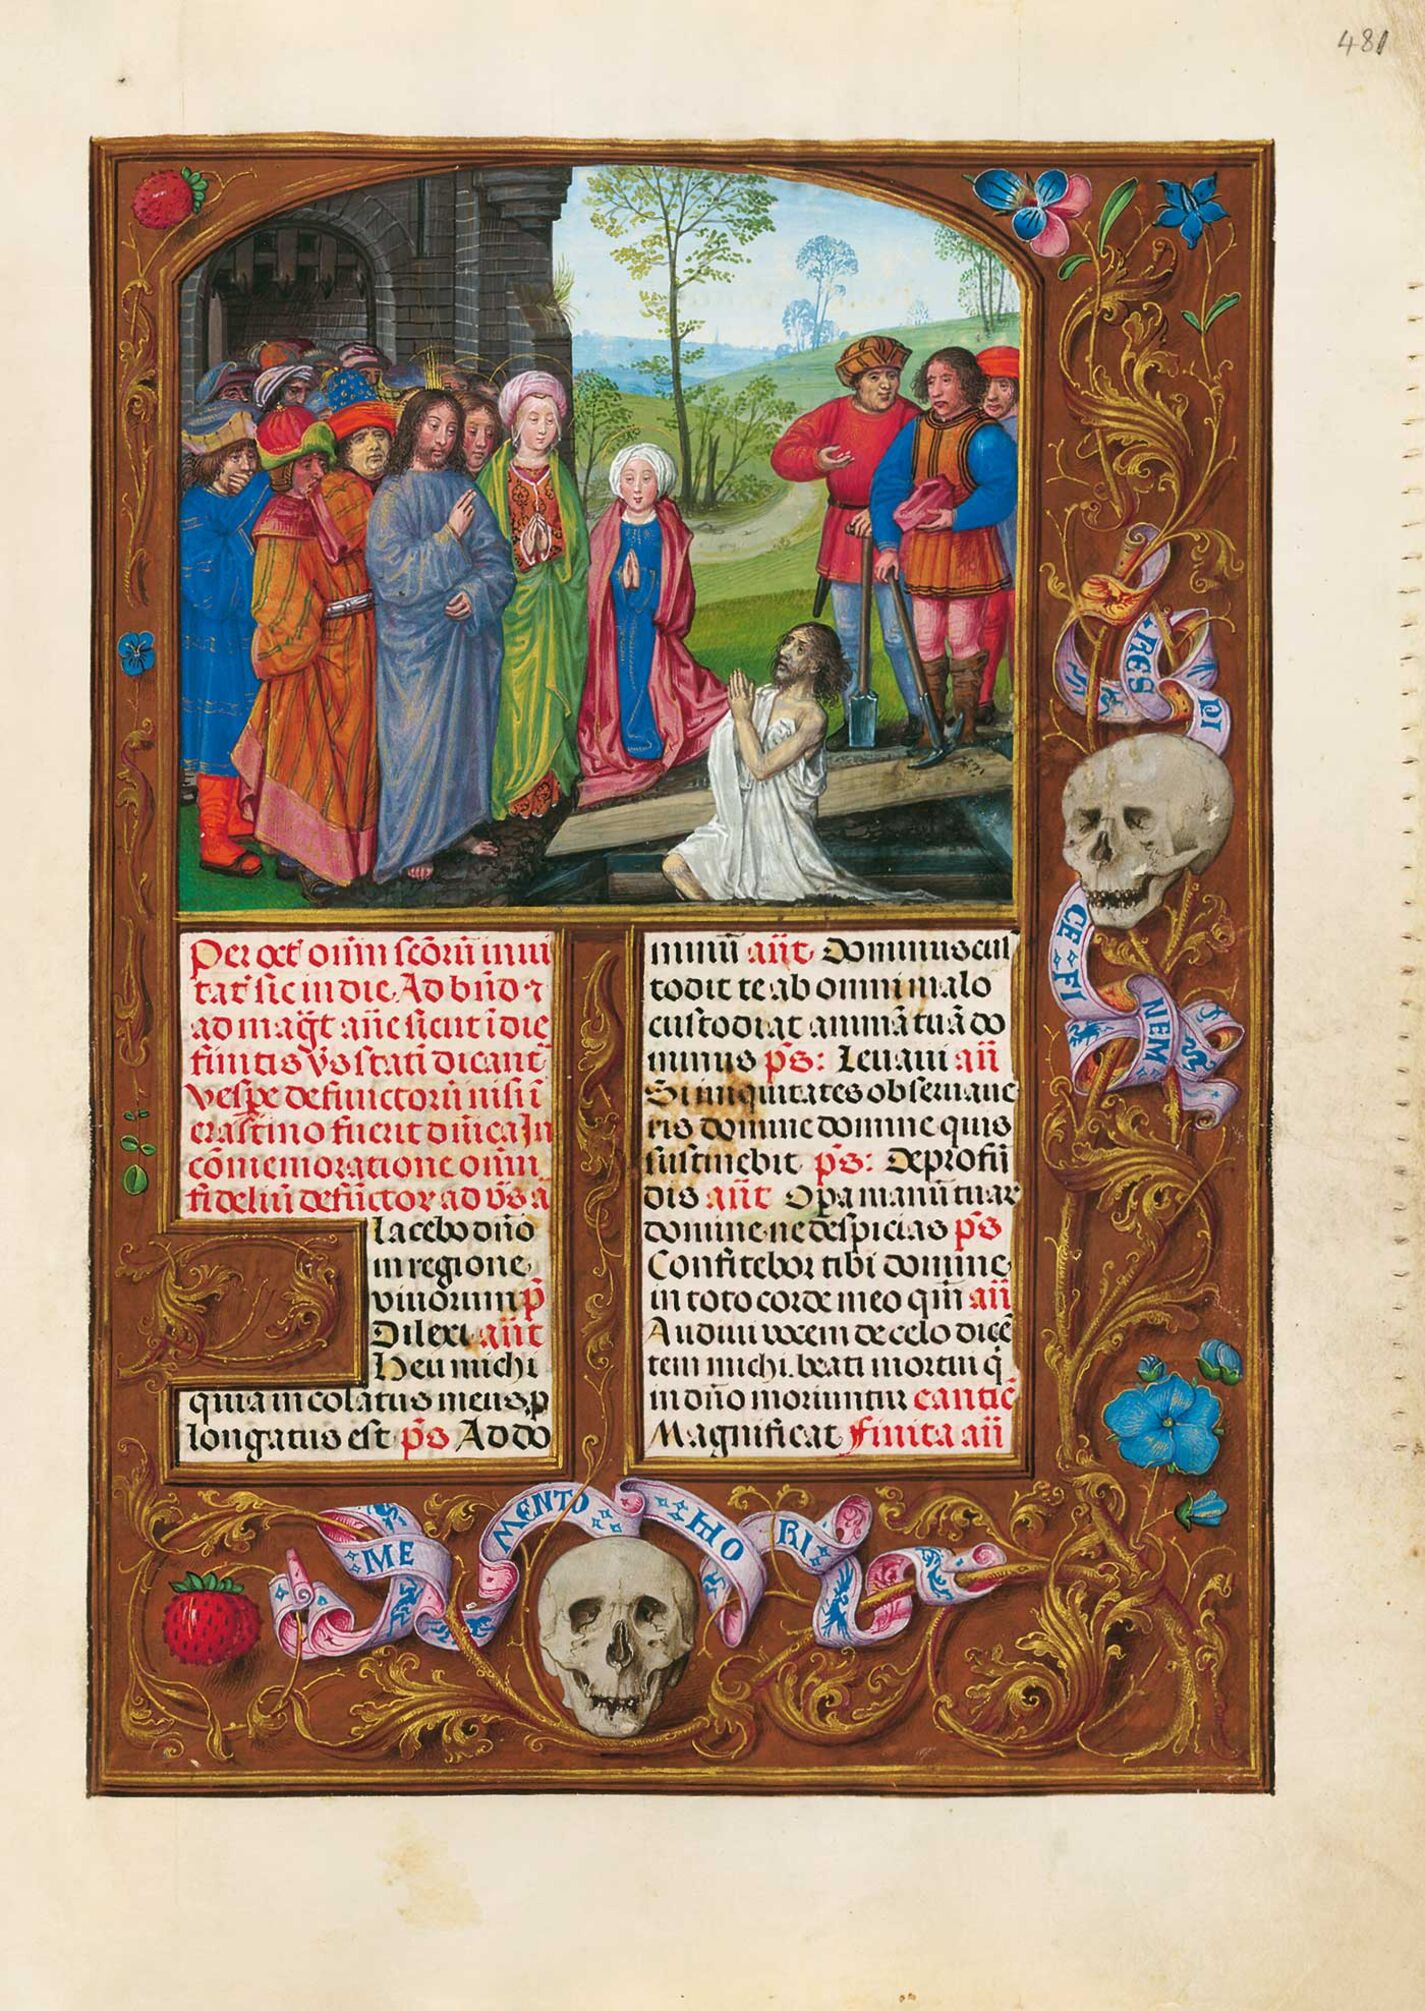 481
Per oct̄ oīm sc̄oꝝ inui
tat̄ sic in die. Ad bn̄d ⁊
ad mag̃t añe sicut ī die
finitis v̄s stati dicant̄
vesp̄e defunctoꝝ nisi ī
crastino fuerit dn̄ica In
cōmemoratione oīm
fideliū defūctoꝝ ad v̄s a
lacebo dn̄o
in regione
viuorum p̄
Dilexi añt
Heu michi
quia incolatus meus ꝓ
longatus est p̄s Ad do
minū añt Dominus cus
todit te ab omni malo
custodiat animā tuā do
minus p̄s: Leuaui añ
Si iniquitates obseruaue
ris domine domine quis
sustinebit p̄s: De profū
dis añt Opa manū tuaꝝ
domine ne despicias p̄s
Confitebor tibi domine
in toto corde meo qm̄ añ
Audiui vocem de celo dicē
tem michi. beati mortui q̄
in dn̄o moriuntur cantic̄
Magnificat finita añ
RES
PI
CE · FI
NEM
ME
MENTO
MO
RI